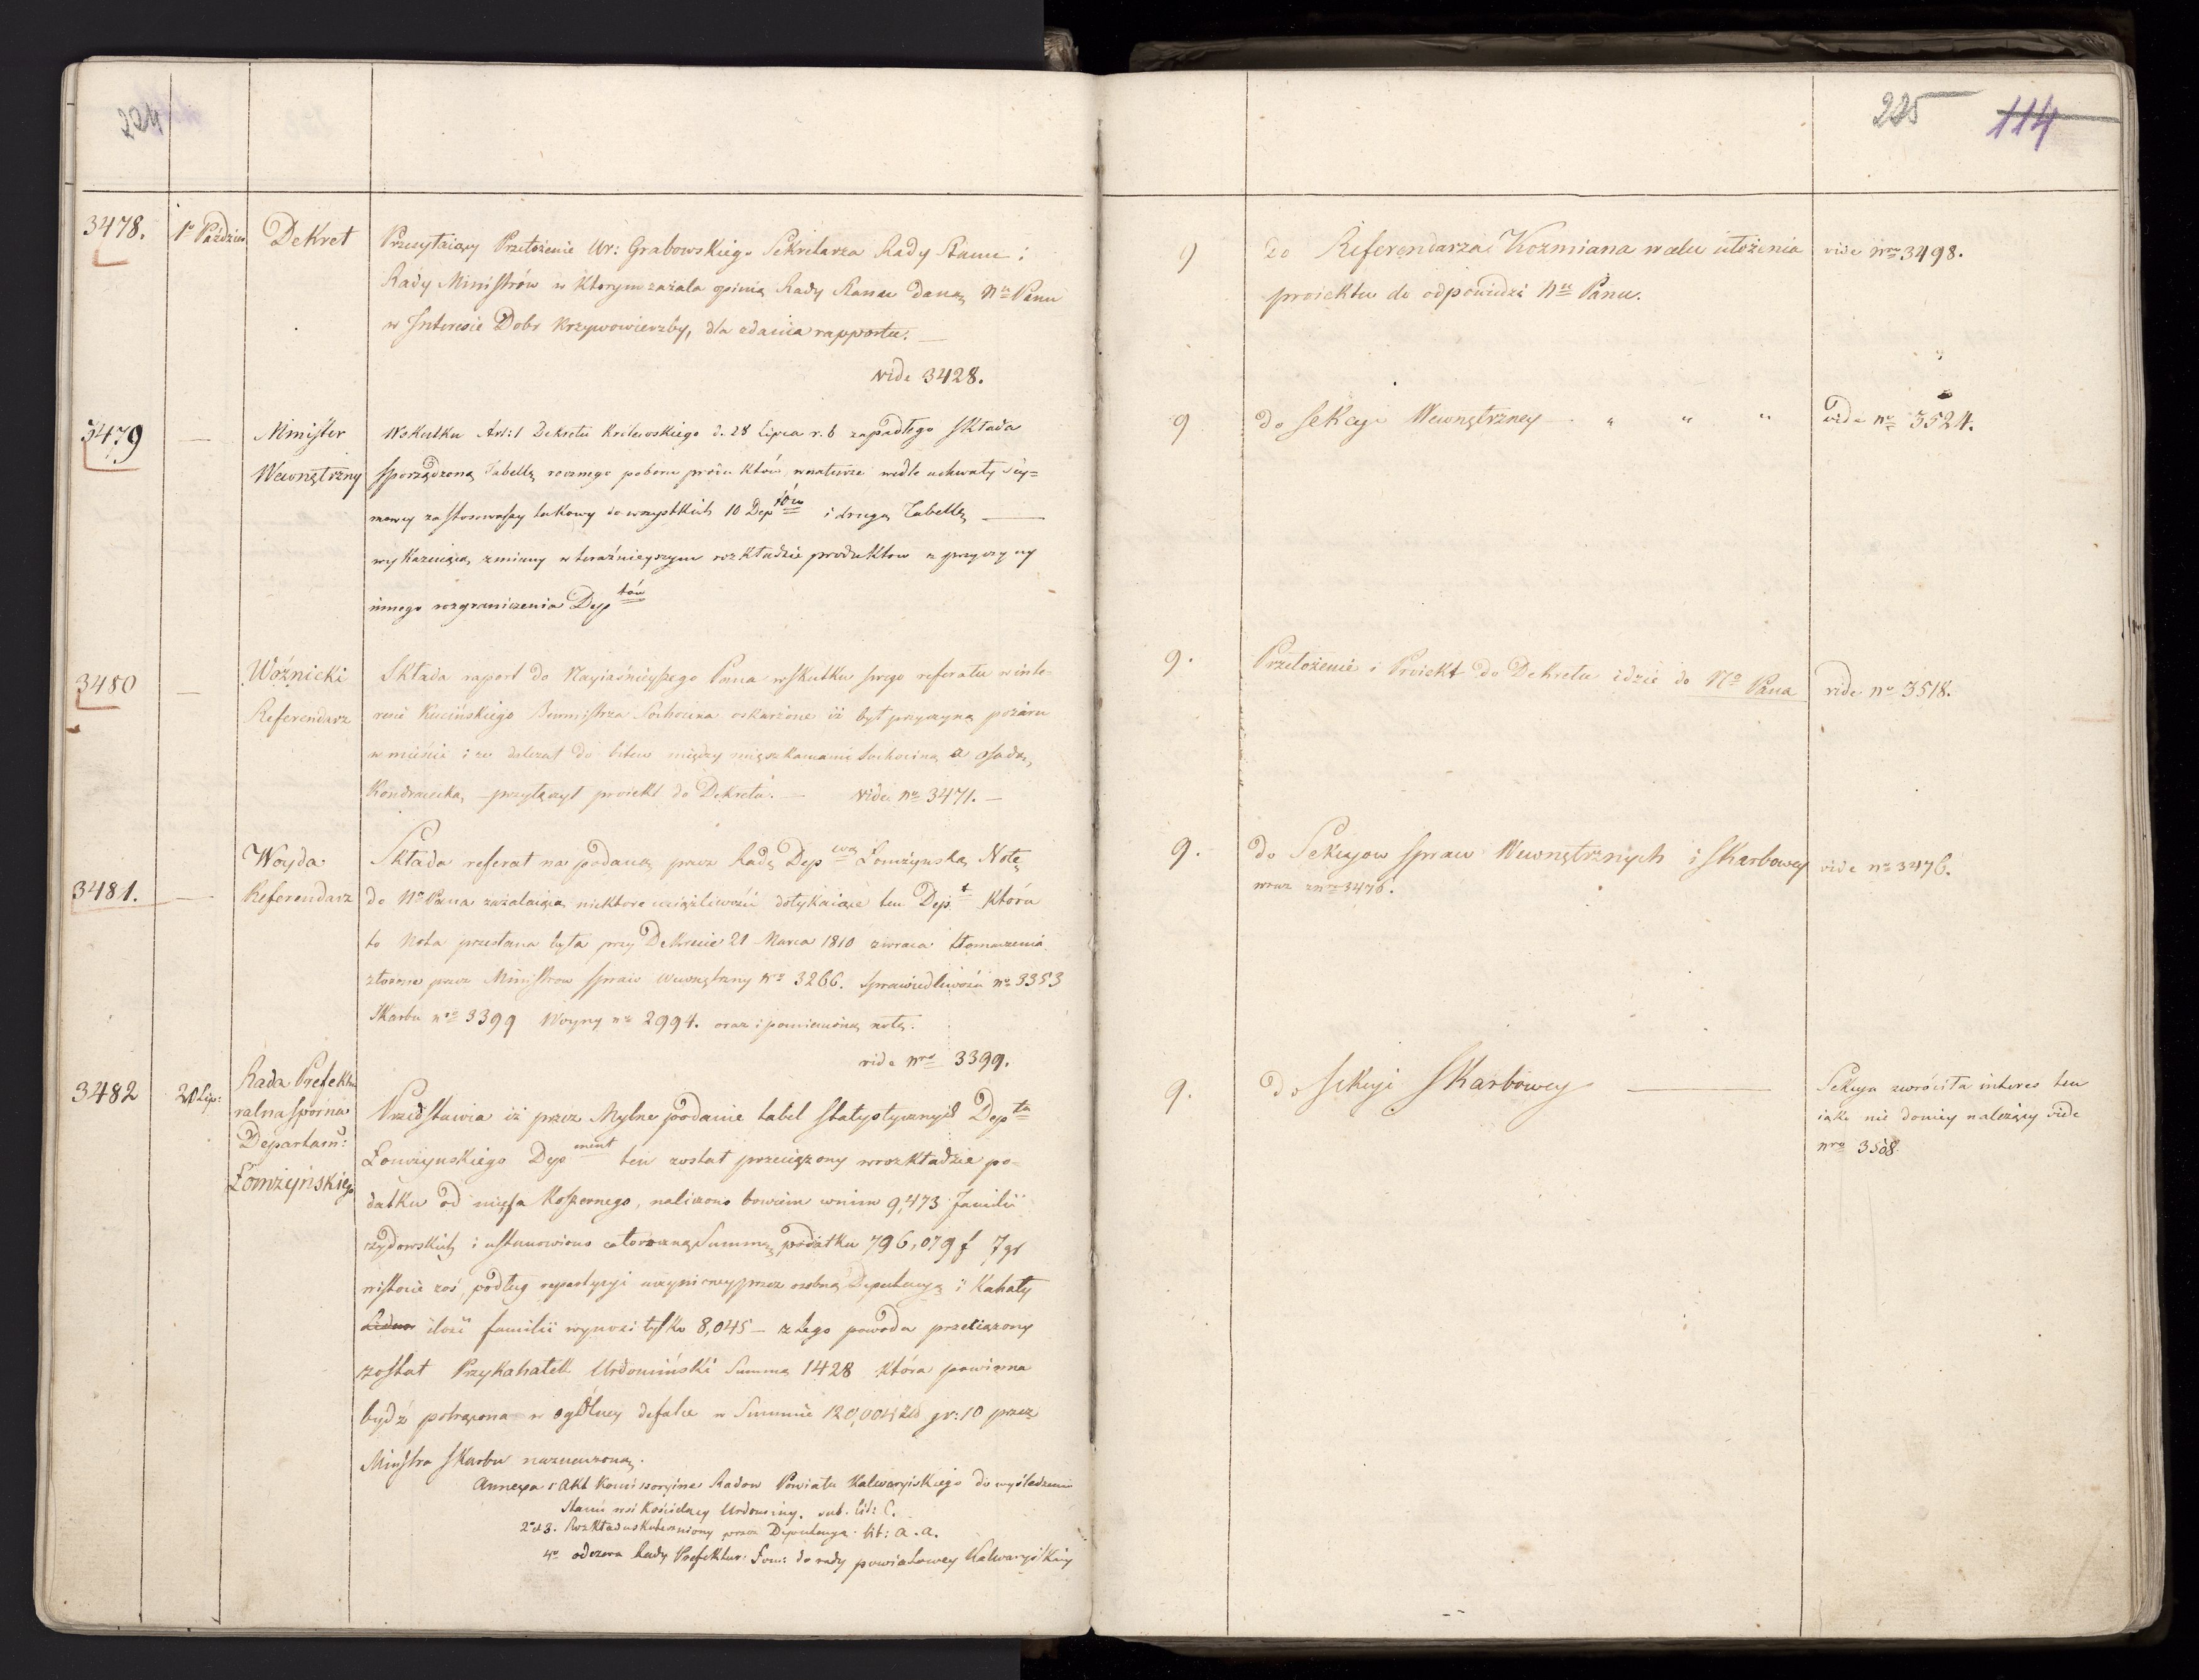 224
225 114
3478. 1o Paździer. Dekret Przesyłaiący Przełożenie Ur: Grabowskiego Sekretarza Rady Stanu i
Rady Ministrów w którym zażala opinią Rady Stanu daną Nu Panu
w Interesie Dobr Krzywowierzby, dla zdania rapportu. —
vide 3428.
9 do Referendarza Kozmiana w celu ułożenia
proiektu do odpowiedzi Nu Panu.
vide nro 3498.
3479 — Minister
Wewnętrzny
Wskutku Art: 1 Dekretu Królewskiego d. 28 Lipca r. b zapadłego składa
sporządzoną Tabellę rocznego poboru produktów w naturze wedle uchwały Sey=
mowey zastosowaney do wszystkich 10 Deptów i drugą Tabellę —
wykazuiącą zmiany w teraźnieyszym rozkładzie produktow z przyczyny
innego rozgraniczenia Deptów
9 do Sekcyi Wewnętrzney — " " "
vide no 3524.
3480 — Woźnicki
Referendarz
Składa raport do Nayiaśnieyszego Pana wskutku swego referatu w inte-
resie Kucińskiego Burmistrza Sochocina oskarżone iż był przyczyną pożaru
w mieście i że do bitew między mieszkańcami Sochocina a osadą
— przyłączył proiekt do Dekretu. — vide no 3471. —
9. Przełożenie i Proiekt do Dekretu idzie do No Pana
vide no 3518.
3481. — Woyda
Referendarz
Składa referat na podaną przez Radę Depwą Łomżynską Notę
do No Pana zażalaiącą niektore uciążliwości dotykaiące ten Dept która
to Nota przesłana była przy Dekrecie 21 Marca 1810 zwraca tłomaczenia
złożone przez Ministrow spraw Wewnętrzny no 3266. Sprawiedliwości no 3353
Skarbu nro 3399 Woyny no 2994. oraz i pomienioną notę.
vide nro 3399.
9. do Sekcyow spraw Wewnętrznych i Skarbowey
wraz z nro 3476.
vide no 3476.
3482 20 Lip: Rada Prefektu
ralna sporna
Departam:
Łomżyńskiego
Przedstawia iż przez Mylne podanie tabel statystycznych Depta
Łomżynskiego Depment ten został przeciążony w rozkładzie po=
datku od mięsa koszernego, naliczono bowiem w nim 9,473 familii
żydowskich i ustanowiono całoroczną Summę podatku 796,079 f 7 gr
w istocie zaś, podług repartycyi uczynioney przez osobną Deputacyą i Kahały
ilość familii wynosi tylko 8,045 — z tego powodu przeciążony
został Przykahałek Urdomiński Summą 1428 która powinna
bydź potrącona w ogólney defalce w Summie 120,004 zł gr: 10 przez
Ministra Skarbu naznaczoną.
Annexa 1 Akt Komissoryine Radow Powiatu Kalwaryiskiego do wyśledzenia
Stanu wsi Kościelney Urdominy. sub. lit: C.
2 et 3. Rozkład uskuteczniony przez Deputacya. lit: a. a.
4o odezwa Rady Prefektur: Łom: do rady powiatowey Kalwaryiskiey
9. do Sekcyi Skarbowey —
Sekcya zwróciła interes ten
iako nie do niey należący vide
nro 3508.